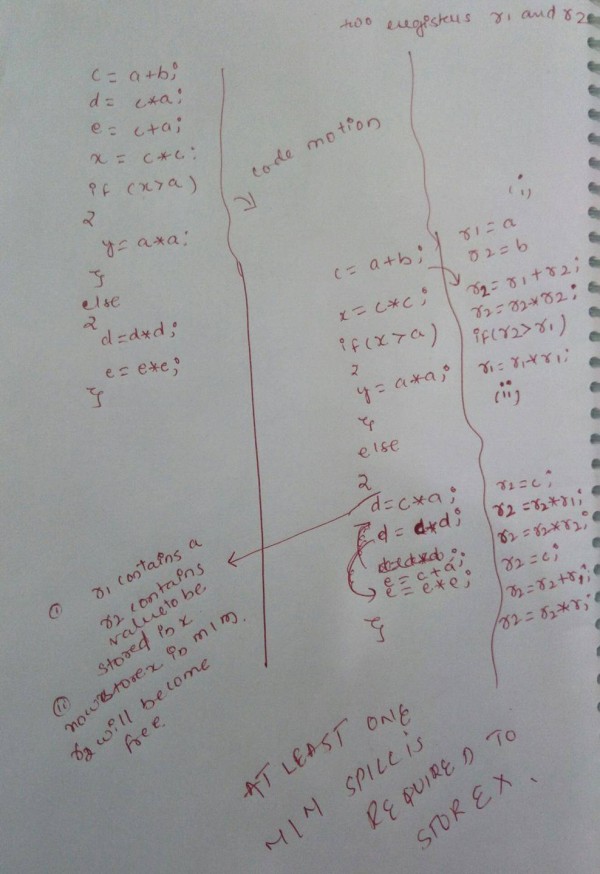 two registers r1 and r2
c = a+b;
d = c*a;
e = c+a;
x = c*c;
if (x>a)
{
y = a*a;
}
else
{
d=d*d;
e = e*e;
}
code motion
c = a+b;
x = c*c;
if (x>a)
{
y = a*a;
}
else
{
d=c*a;
d = d*d;
e = c+a;
e = e*e;
}
(i)
r1 = a
r2 = b
r2 = r1+r2;
r2=r2*r2;
if(r2>r1)
r1=r1*r1;
(ii)
r2=c;
r2=r2*r1;
r2=r2*r2;
r2=c;
r2=r2+r1;
r2=r2*r;
(i) r1 contains a
r2 contains
value to be
stored in x
(ii)
now store x in m/m.
r2 will become
free.
AT LEAST ONE
M/M SPILL IS
REQUIRED TO
STORE X.